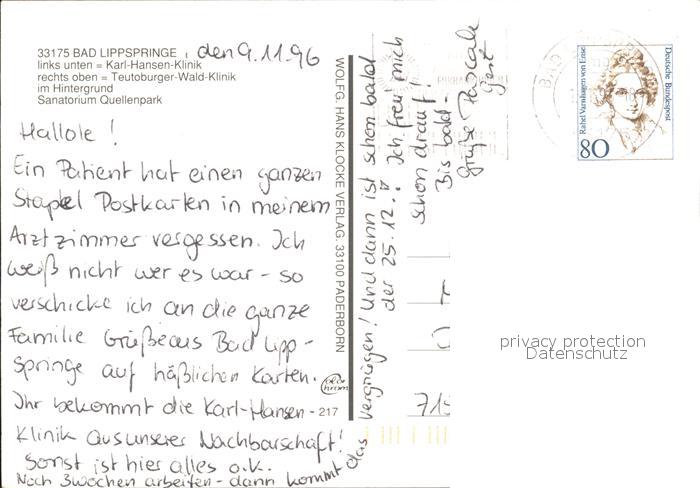 33175 BAD LIPPSPRINGE, den 9.11.96
links unten = Karl-Hansen-Klinik
rechts oben = Teutoburger-Wald-Klinik
im Hintergrund
Sanatorium Quellenpark
Hallole!
Ein Patient hat einen ganzen
Stapel Postkarten in meinem
Arztzimmer vergessen. Ich
weiß nicht wer es war - so
verschicke ich an die ganze
Familie Grüße aus Bad Lipp-
springe auf häßlichen Karten.
Ihr bekommt die Karl-Hansen-
Klinik aus unserer Nachbarschaft!
Sonst ist hier alles o.k.
Noch 3 Wochen arbeiten - dann kommt das
Vergnügen! Und dann ist schon bald
der 25.12.! Ich freu mich
schon drauf!
Bis bald -
Grüße Pascale
Gert
217
WOLFG. HANS KLOCKE VERLAG. 33100 PADERBORN
Rahel Varnhagen von Ense
Deutsche Bundespost
80
BAD
715
privacy protection
Datenschutz